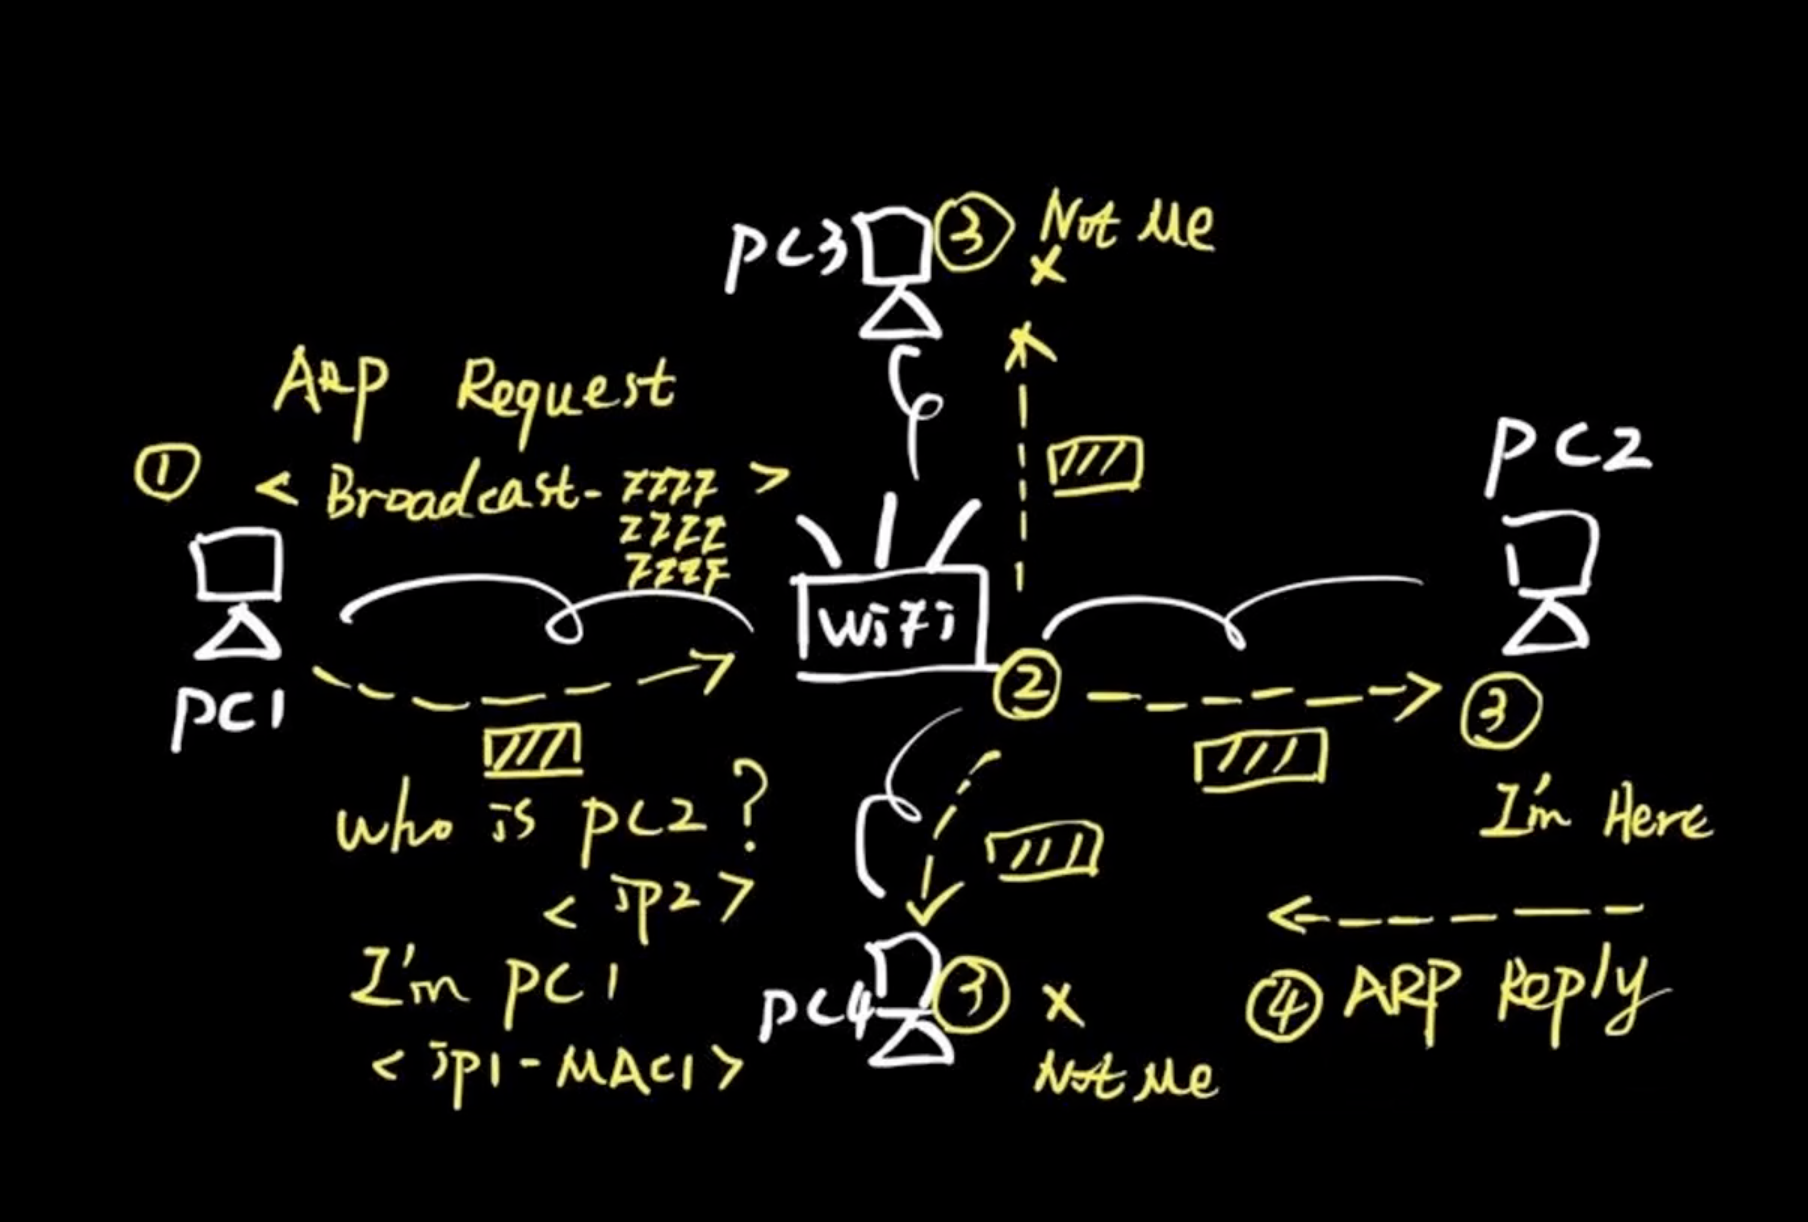 PC3 ③ Not Me
x
ARP Request
① < Broadcast- FFFF >
FFFF
FFFF
PC2
WiFi
PC1
②
③
Who is PC2 ?
< IP2 >
I'm Here
I'm PC1
< IP1-MAC1 >
PC4 ③ x
Not Me
④ ARP Reply